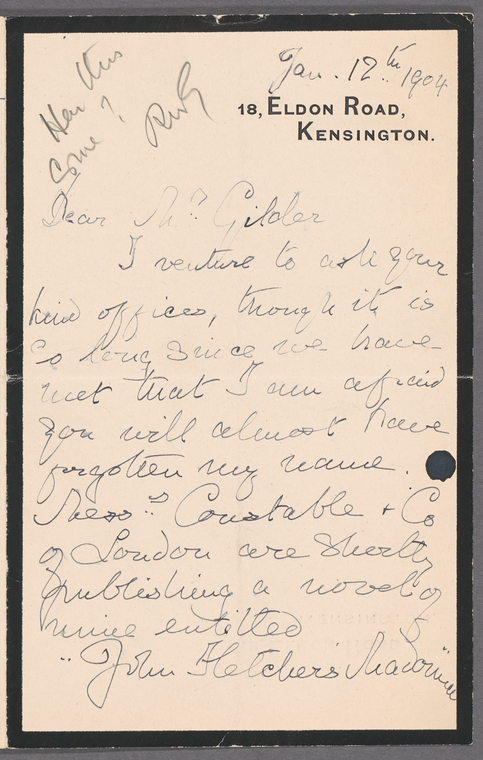 Has this
come?
Jan. 12th 1904
18, ELDON ROAD,
KENSINGTON.
Dear Mr. Gilder
I venture to ask your
kind offices, though it is
so long since we have
met that I am afraid
you will almost have
forgotten my name.
Messrs Constable & Co
of London are shortly
publishing a novel of
mine entitled
"John Fletcher's Madonna"